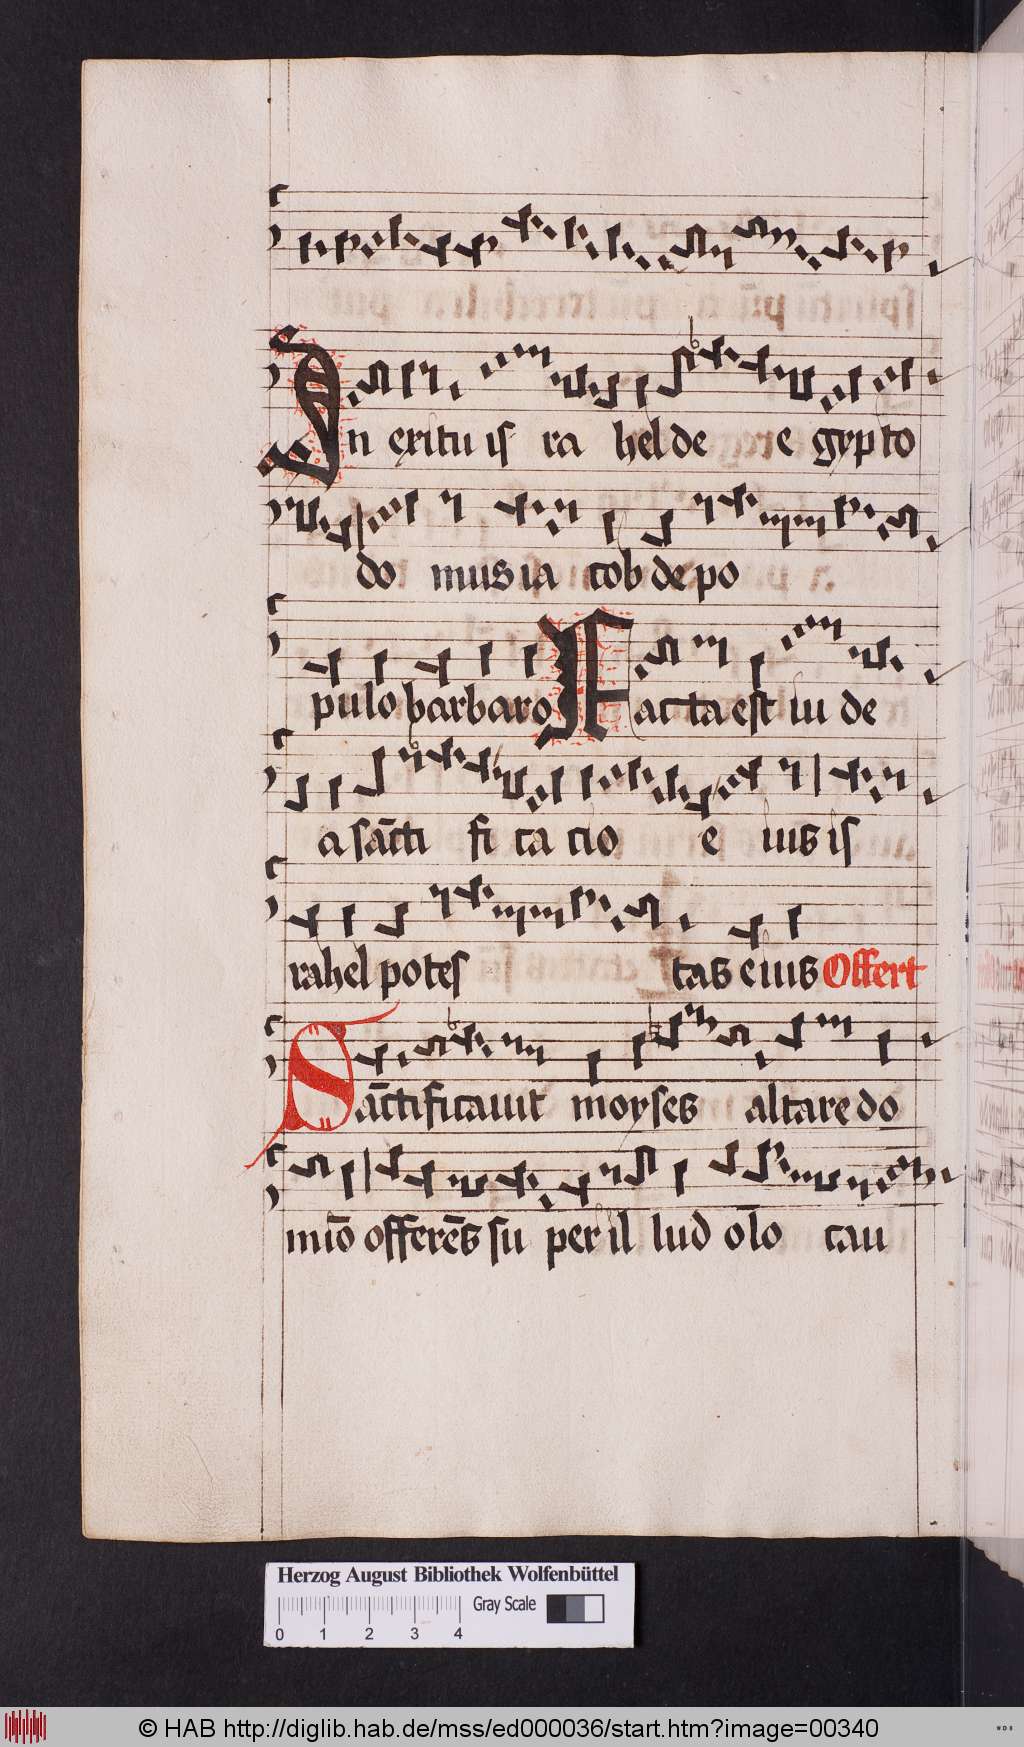 In exitu is ra hel de e gypto
do mus ia cob de po
pulo barbaro Facta est iu de
a sācti fi ca cio e ius is
rahel potes tas eius Offert
Sāctificauit moyses altare do
mīo offerēs su per il lud olo cau
Herzog August Bibliothek Wolfenbüttel
Gray Scale
0 1 2 3 4
© HAB http://diglib.hab.de/mss/ed000036/start.htm?image=00340